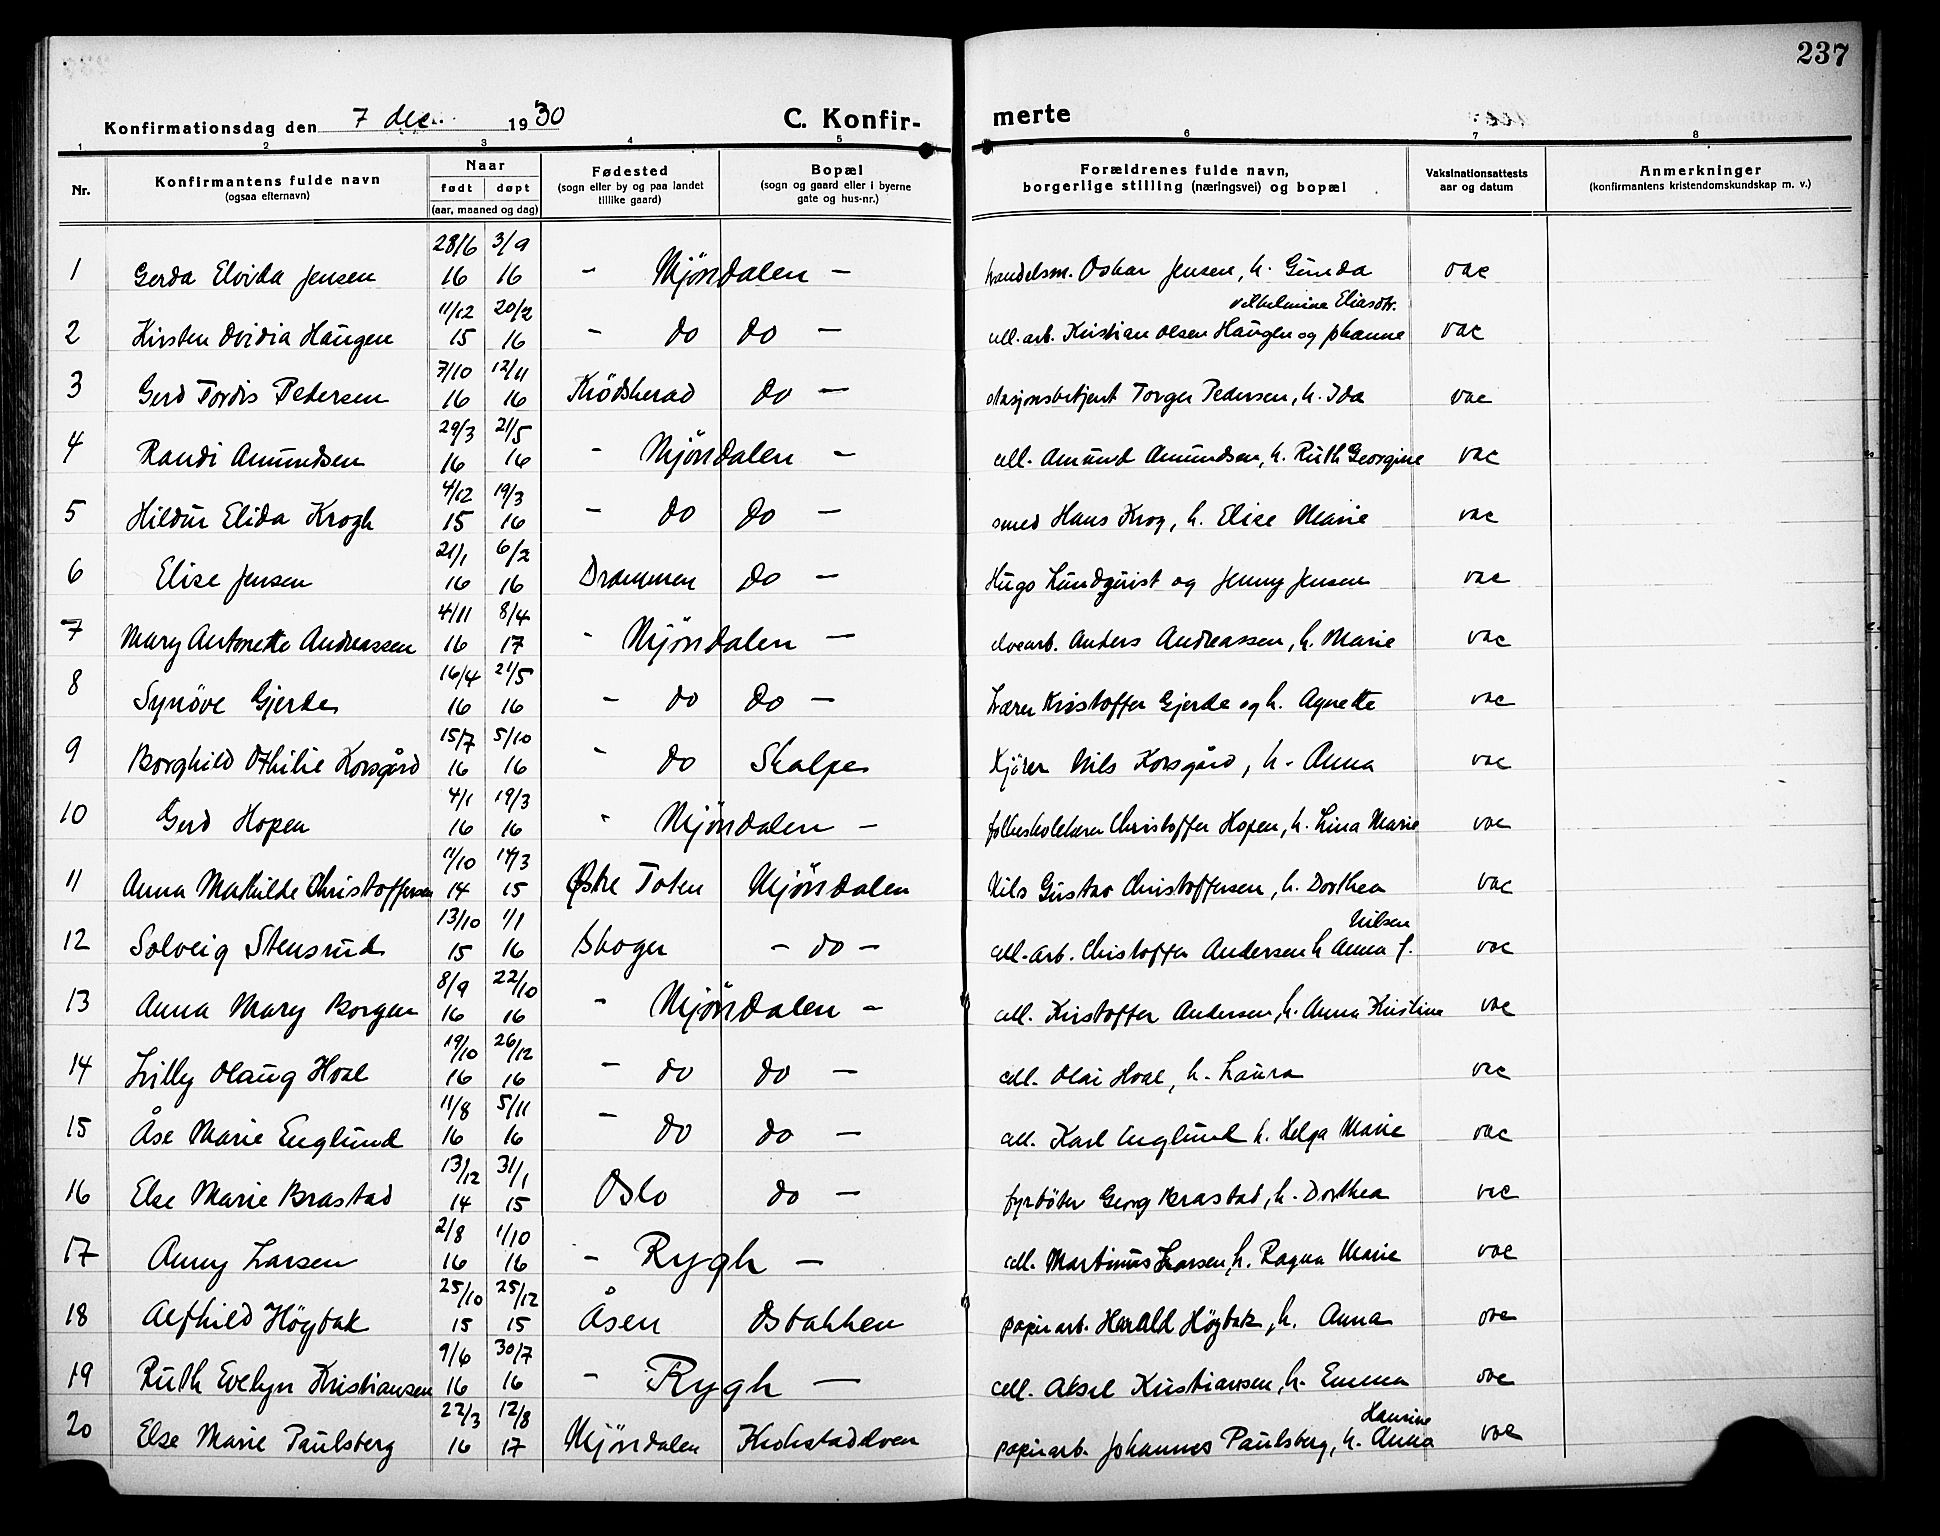 237
Konfirmationsdag den 7 dec. 1930 C. Konfir- merte
1 2 3 4 5 6 7 8
Nr. Konfirmantens fulde navn (ogsaa efternavn) Naar født døpt (aar, maaned og dag) Fødested (sogn eller by og paa landet tillike gaard) Bopæl (sogn og gaard eller i byerne gate og hus-nr.) Forældrenes fulde navn, borgerlige stilling (næringsvei) og bopæl Vaksinationsattests aar og datum Anmerkninger (konfirmantens kristendomskundskap m. v.)
28/6 3/9
1 Gerda Elvida Jensen 16 16 - Mjöndalen - handelsm. Oskar Jensen, h. Gunda vac
11/12 20/2 Vilhelmine Eliasdtr.
2 Kirsten Ovidia Haugen 15 16 - do do - cell. arb. Kristian Olsen Haugen og Johanne vac
7/10 12/11
3 Gerd Tordis Pedersen 16 16 Krödsherad do - stasjonsbetjent Torger Pedersen, h. Ida vac
29/3 21/5
4 Randi Amundsen 16 16 - Mjöndalen - cell. Amund Amundsen, h. Ruth Georgine vac
4/12 19/3
5 Hildur Elida Krogh 15 16 - do do - smed Hans Krog, h. Elise Marie vac
21/1 6/2
6 Elise Jensen 16 16 Drammen do - Hugo Lundquist og Jenny Jensen vac
4/11 8/4
7 Mary Antonette Andreassen 16 17 - Mjöndalen - elvearb. Anders Andreassen, h. Marie vac
16/4 21/5
8 Synöve Gjerde 16 16 - do do - Lærer Kristoffer Gjerde og h. Agnette vac
15/7 5/10
9 Borghild Othilie Korsgård 16 16 - do Skalpe Kjörer Nils Korsgård, h. Anna vac
4/1 19/3
10 Gerd Hopen 16 16 - Mjöndalen - folkeskolelærer Christoffer Hopen, h. Lina Marie vac
11/10 14/3
11 Anna Mathilde Christoffersen 14 15 Østre Toten Mjöndalen Nils Gustav Christoffersen, h. Dorthea vac
13/10 1/1 Nilsen
12 Solveig Stensrud 15 16 Skoger - do - cell. arb. Christoffer Andersen h Anna f. vac
8/9 22/10
13 Anna Mary Borgen 16 16 - Mjöndalen - cell. Kristoffer Andersen, h. Anna Kristine vac
19/10 26/12
14 Lilly Olaug Hval 16 16 - do do - cell. Olai Hval, h. Laura vac
11/8 5/11
15 Åse Marie Englund 16 16 - do do - cell. Karl Englund h. Helga Marie vac
13/12 31/1
16 Else Marie Brastad 14 15 Oslo do - fyrböter Georg Brastad, h. Dorthea vac
2/8 1/10
17 Anny Larsen 16 16 - Rygh - cell. Martinus Larsen, h. Ragna Marie vac
25/10 25/12
18 Alfhild Högbak 15 15 Åsen Osbakken papirarb. Harald Högbak, h. Anna vac
9/6 30/7
19 Ruth Evelyn Kristiansen 16 16 - Rygh - cell. Aksel Kristiansen, h. Emma vac
22/3 12/8 Haurine
20 Else Marie Paulsberg 16 17 Mjöndalen Krokstadelven papirarb. Johannes Paulsberg, h. Anna vac